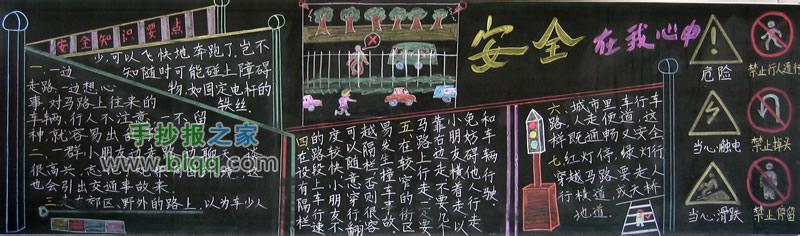 安全 在我心中
安全知识要点
一.一边
走路,一边想心
事,对马路上往来的
车辆,行人不注意,不留
神,就容易出
二.一群小朋友在走路
很高兴,
也会引出交通事故来.
三.人在郊区、野外的路上,以为车少人
少,可以飞快地奔跑了,岂不
知随时可能碰上障碍
物,如固定电杆的
铁丝.
四在设有隔栏
的路段上车行速
度较快小朋友不
可以随意穿行翻
越隔栏否则很容
易发生撞车事故
五在较窄的街区
马路上行走一定要
靠右边走不要几个
小朋友横着走以
免妨碍他人行走
和车辆行驶
六.城市里车行车
路,人走便道,这
样既通畅又安全.
七.红灯停,绿灯行
穿越马路要走人
行横道,或天桥
地道.
危险
当心触电
当心滑跌
禁止行人通行
禁止掉头
禁止停留
手抄报之家
www.blqq.com